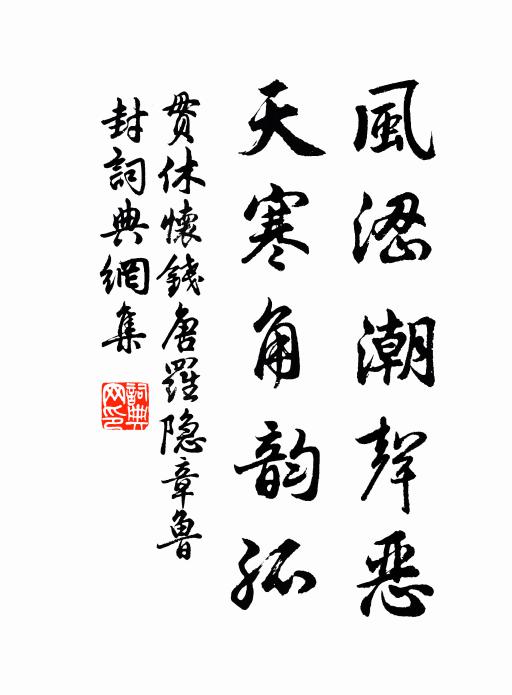 風澀潮聲惡
天寒角韵孤
貫休懷錢唐羅隐章魯
封詞典網集
詞典网印